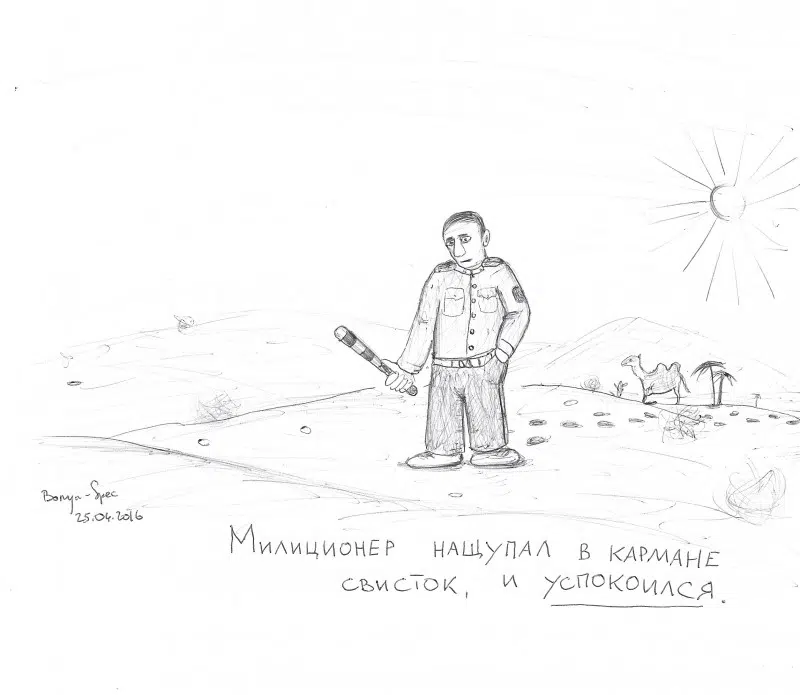 Вотуп-Spec
25.04.2016
Милиционер нащупал в кармане
свисток, и успокоился.